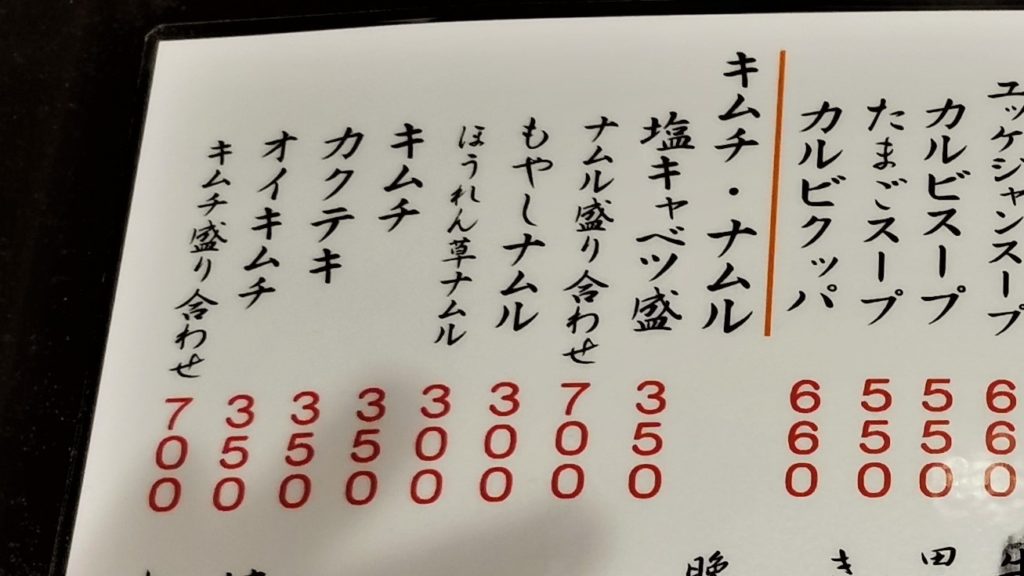 ユッケジャンスープ 660
カルビスープ 550
たまごスープ 550
カルビクッパ 660
キムチ・ナムル
塩キャベツ盛 350
ナムル盛り合わせ 700
もやしナムル 300
ほうれん草ナムル 300
キムチ 350
カクテキ 350
オイキムチ 350
キムチ盛り合わせ 700